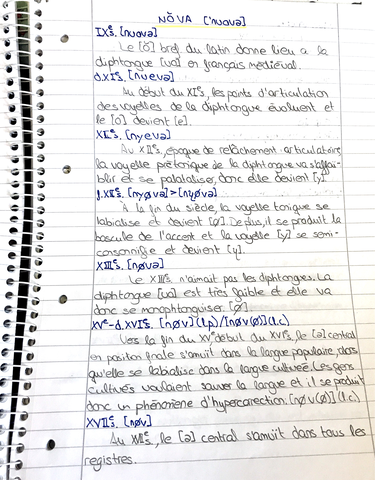 NŎVA ['nuova]
IXᵉs. [nuovə]
Le [ŏ] bref du latin donne lieu a la
diphtongue [uo] en français médiéval.
d.XIᵉs. [nuevə]
Au début du XIᵉs, les points d'articulation
des voyelles de la diphtongue évoluent et
le [o] devient [e].
XIIᵉs. [nyevə]
Au XIIᵉs, époque de relâchement articulatoire,
la voyelle prétonique de la diphtongue va s'affai-
blir et se palataliser, donc elle devient [y]
f.XIIᵉs. [nyøvə]>[nɥøvə]
À la fin du siècle, la voyelle tonique se
labialise et devient [ø]. De plus, il se produit la
bascule de l'accent et la voyelle [y] se semi-
consonnifie et devient [ɥ].
XIIIᵉs. [nøvə]
Le XIIIᵉs. n'aimait pas les diphtongues. La
diphtongue [uo] est très faible et elle va
donc se monophtonguiser. [ø].
XVᵉ-d.XVIᵉs. [nøv](l.p)/[nøvø](l.c)
Vers la fin du XVᵉ début du XVIᵉs, le [ə] central
en position finale s'amuït dans la langue populaire, alors
qu'elle se labialise dans la langue cultivée. Les gens
cultivés voulaient sauver la langue et il se produit
donc un phénomène d'hypercorrection. [nøv(ø)] (l.c)
XVIIᵉs. [nøv]
Au XVIIᵉs, le [ə] central s'amuït dans tous les
registres.